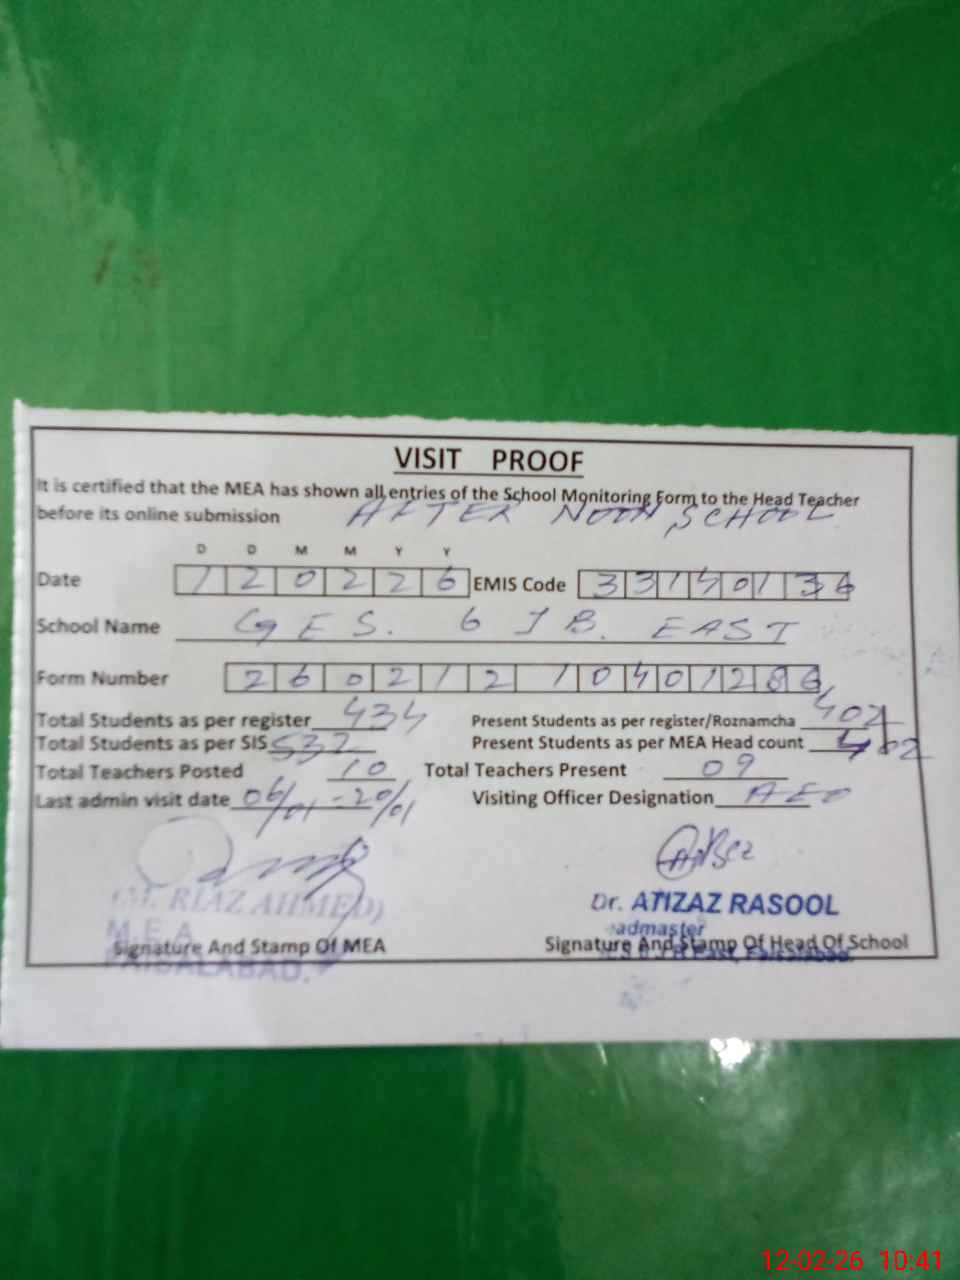 VISIT PROOF
It is certified that the MEA has shown all entries of the School Monitoring Form to the Head Teacher
before its online submission AFTER NOON SCHOOL
D D M M Y Y
Date 120226 EMIS Code 33140136
School Name GES. 6 JB. EAST
Form Number 260212104012
Total Students as per register 434 Present Students as per register/Roznamcha 402
Total Students as per SIS 532 Present Students as per MEA Head count 402
Total Teachers Posted 10 Total Teachers Present 09
Last admin visit date 06/01-20/01 Visiting Officer Designation AEO
(M. RIAZ AHMED) Dr. ATIZAZ RASOOL
M.E.A admaster
Signature And Stamp Of MEA Signature And Stamp Of Head Of School
FAISALABAD. East, Faisalabad.
12-02-26 10:41